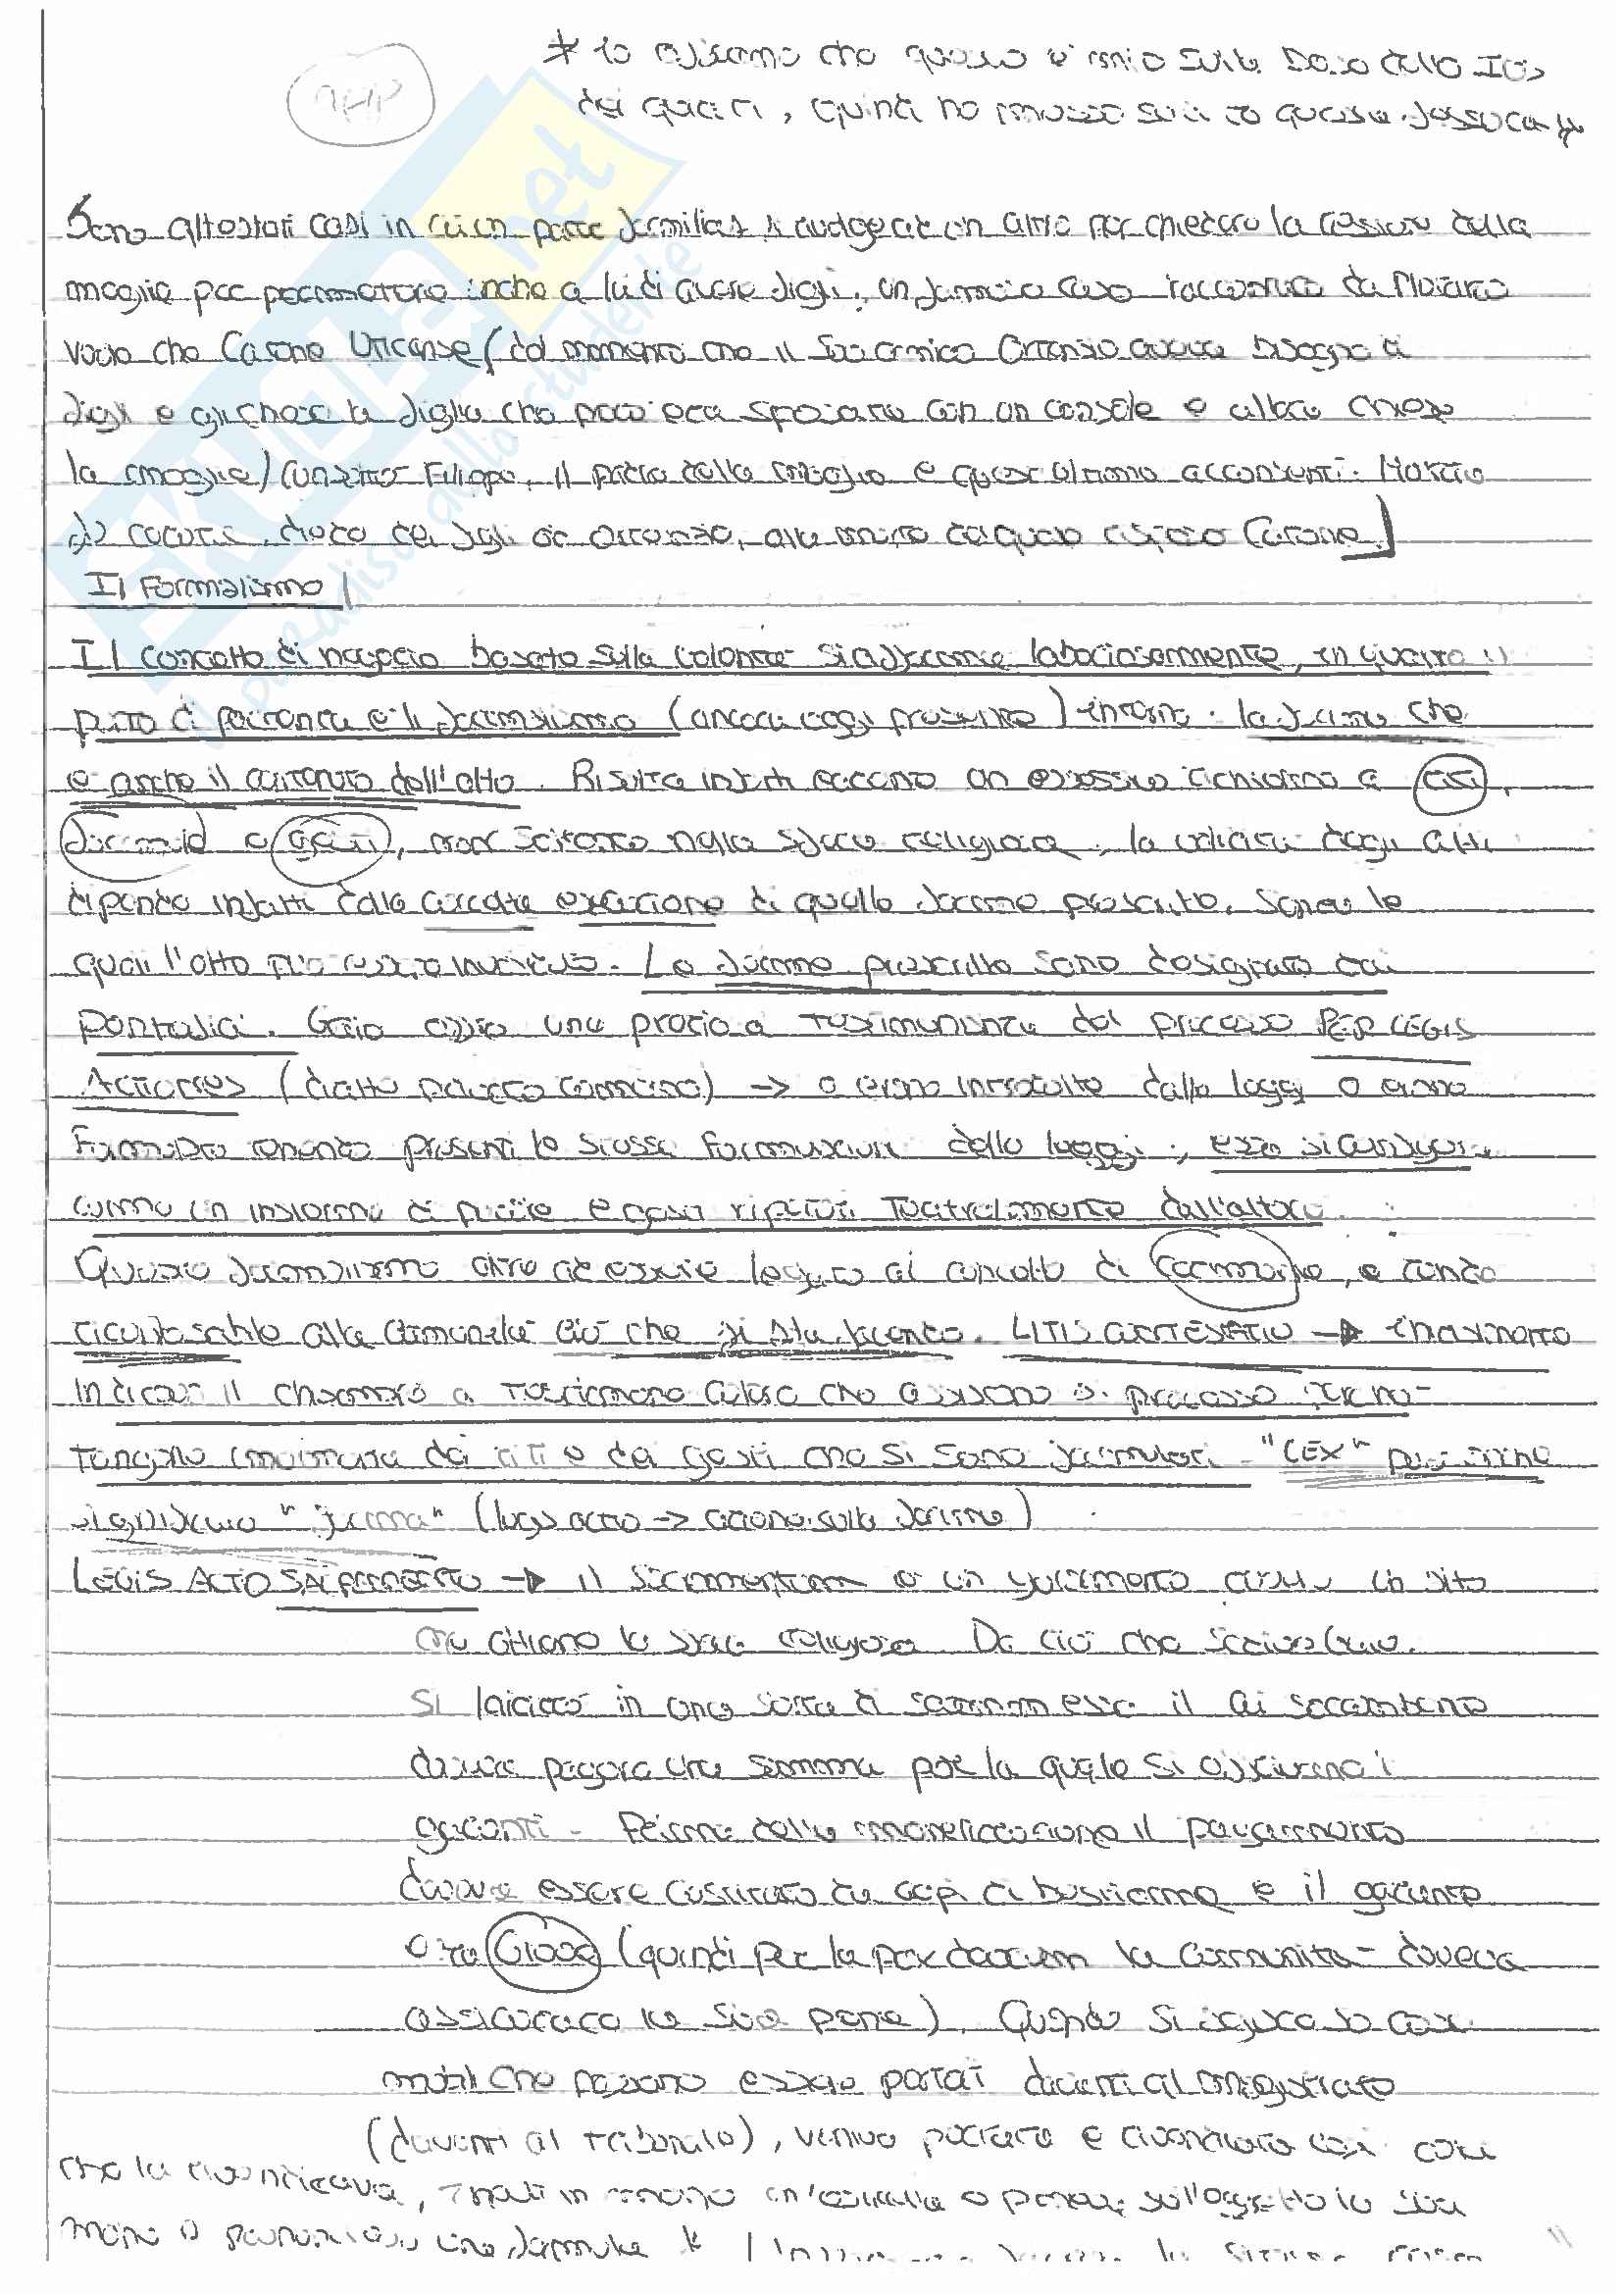 * Io affermo che questo è mio sulla base dello Ius
dei quiriti, quindi ho messo su di te questa festuca
Sono attestati casi in cui un pater familias si rivolgeva ad un altro per chiedere la cessione della
moglie per permettere anche a lui di avere figli; un famoso caso raccontato da Plutarco
vede che Catone Uticense (dal momento che il suo amico Ortensio aveva bisogno di
figli e gli chiese la figlia che però era sposata con un console e allora chiese
la moglie) consultò Filippo, il padre della moglie e quest'ultimo acconsentì. Marzia
diede dei figli ad Ortensio, alla morte del quale risposò Catone.]
Il Formalismo
Il concetto di negozio basato sulla volontà si affermò laboriosamente, in quanto il
punto di partenza è il formalismo (ancora oggi presente) interno: la forma che
è anche il contenuto dell'atto. Risulta infatti eccome un eccessivo richiamo a riti,
formule e gesti, non soltanto nella sfera religiosa; la validità degli atti
dipende infatti dalla corretta esecuzione di quelle forme prescritte, senza le
quali l'atto può essere invalido. Le forme prescritte sono designate dai
Pontefici. Gaio offre una preziosa testimonianza del processo PER LEGIS
ACTIONES (diatto) -> o erano introdotte dalle leggi o erano
formulate tenendo presenti le stesse formulazioni delle leggi; esse si configurano
come un insieme di parole e gesti ripetuti teatralmente dall'attore.
Questo formalismo oltre ad essere legato al concetto di Carmen, e tende
riconoscibile alla comunità ciò che si sta facendo. LITIS CONTESTATIO ->
indica il chiamare a testimone coloro che assistono al processo perché
tengano memoria dei riti e dei gesti che si sono formulati - "LEX" può anche
significare "forma" (legis actio -> azione sulla forma)
LEGIS ACTIO SACRAMENTO -> il sacramentum è un giuramento, un rito
che attiene la sfera religiosa. Da ciò che scrive Gaio
si laicizzò in una sorta di scommessa: il soccombente
doveva pagare una somma per la quale si offrivano i
garanti - Prima della monetizzazione il pagamento
doveva essere costituito da capi di bestiame e il garante
era Giove (quindi per la pax deorum la comunità doveva
assicurare la sua pena). Quando si cose
mobili che possono essere portati davanti al magistrato
(davanti al tribunale), veniva portata e rivendicata così: colui
che la rivendicava, tenendo in mano un'asticella e ponendo sull'oggetto la sua
mano e pronunciava una formula *
11